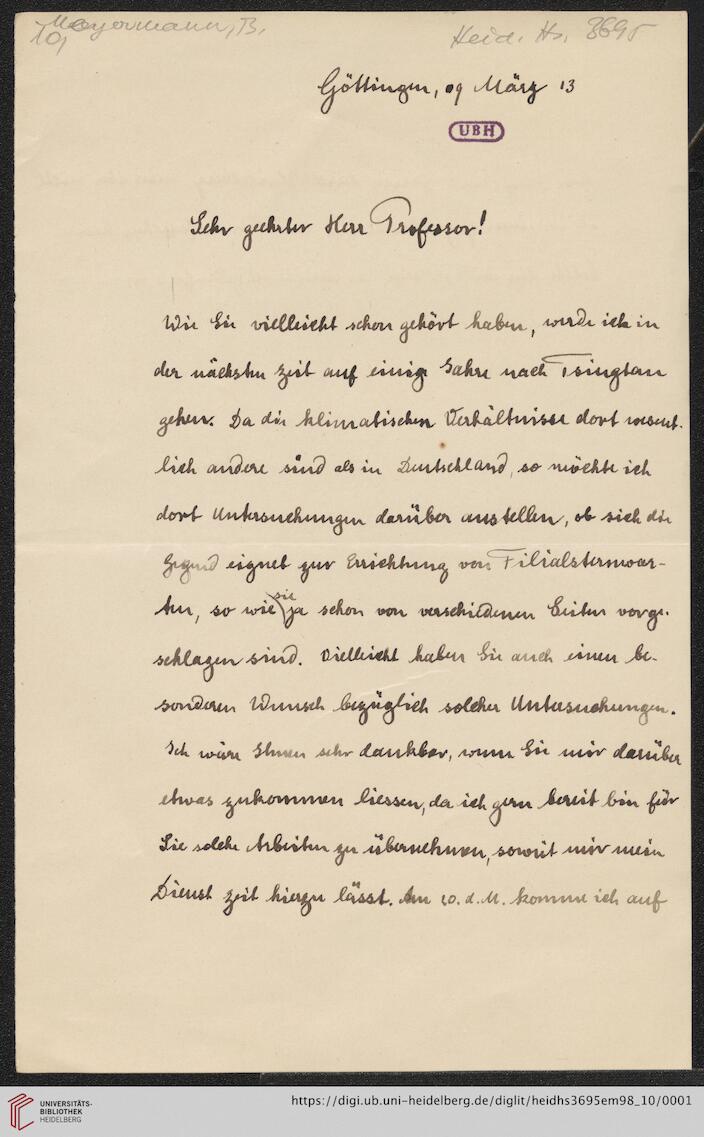 Meyermann, B.
10,
Heid. Hs. 3695
Göttingen, 09 März 13
UBH
Sehr geehrter Herr Professor!
Wie Sie vielleicht schon gehört haben, werde ich in
der nächsten Zeit auf einige Jahre nach Tsingtau
gehen. Da die klimatischen Verhältnisse dort wesent-
lich andere sind als in Deutschland, so möchte ich
dort Untersuchungen darüber anstellen, ob sich die
Gegend eignet zur Errichtung von Filialsternwar-
ten, so wie sie ja schon von verschiedenen Seiten vorge-
schlagen sind. Vielleicht haben Sie auch einen be-
sonderen Wunsch bezüglich solcher Untersuchungen.
Ich wäre Ihnen sehr dankbar, wenn Sie mir darüber
etwas zukommen liessen, da ich gern bereit bin für
Sie solche Arbeiten zu übernehmen, soweit mir mein
Dienst Zeit hierzu lässt. Am 20. d. M. komme ich auf
UNIVERSITÄTS-
BIBLIOTHEK
HEIDELBERG
https://digi.ub.uni-heidelberg.de/diglit/heidhs3695em98_10/0001